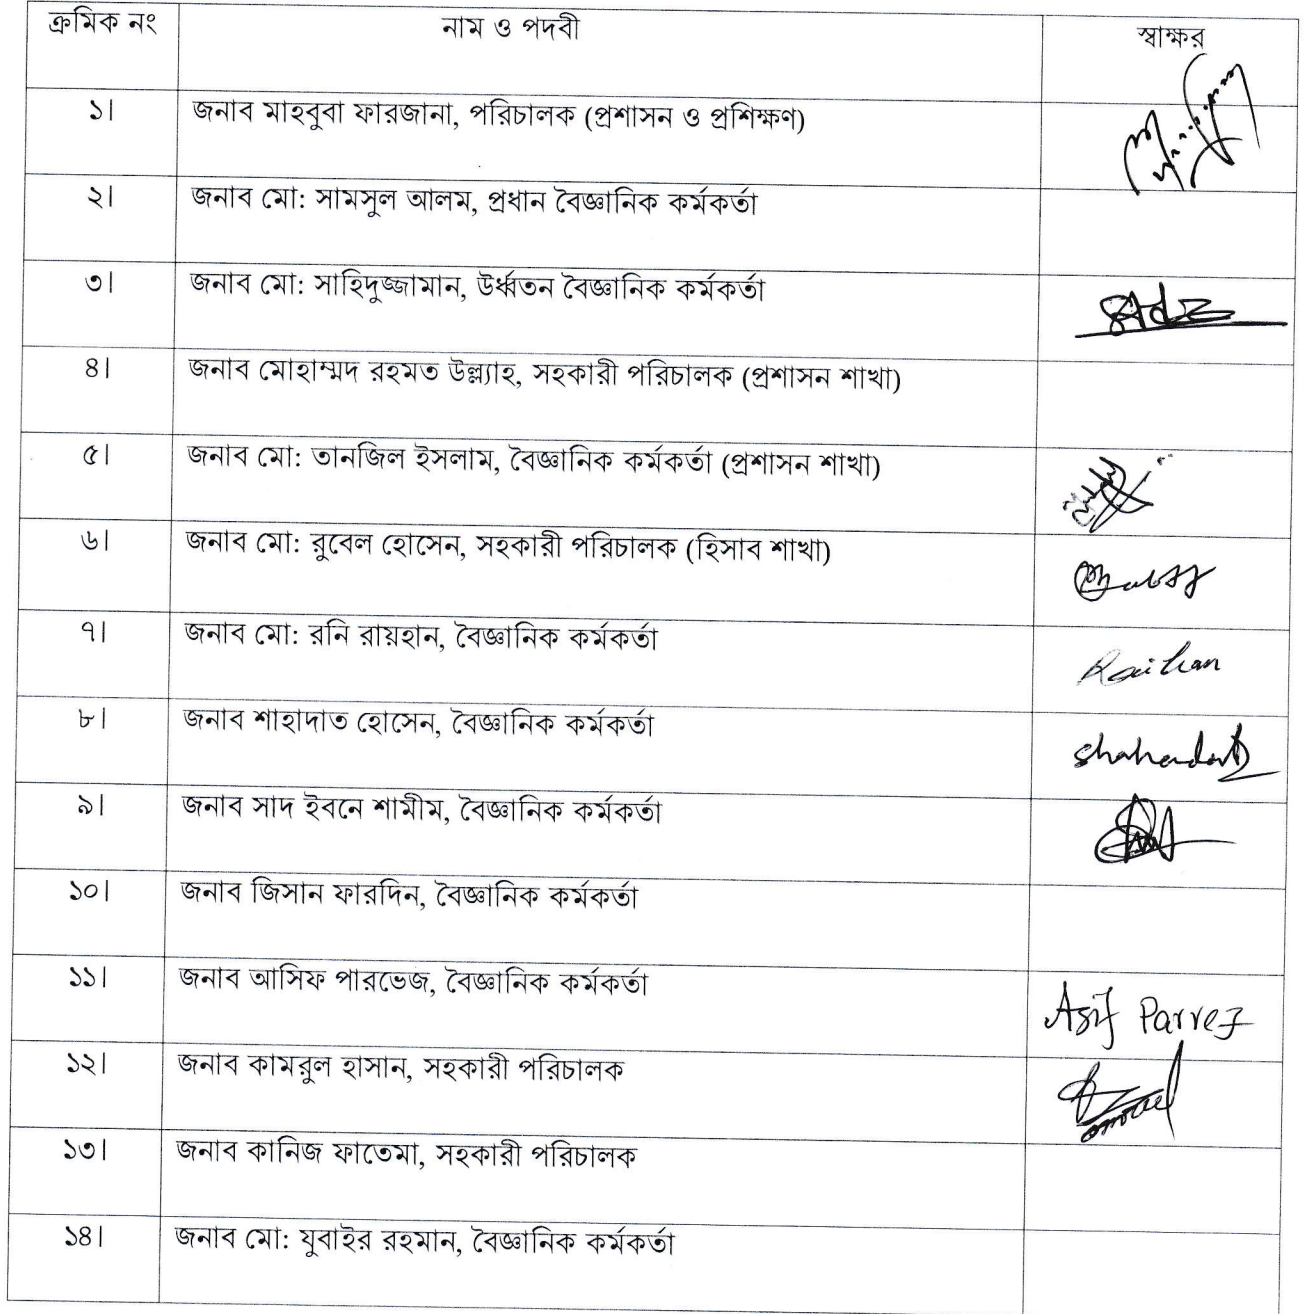 ক্রমিক নং নাম ও পদবী স্বাক্ষর
১। জনাব মাহবুবা ফারজানা, পরিচালক (প্রশাসন ও প্রশিক্ষণ)
২। জনাব মো: সামসুল আলম, প্রধান বৈজ্ঞানিক কর্মকর্তা
৩। জনাব মো: সাহিদুজ্জামান, উর্ধ্বতন বৈজ্ঞানিক কর্মকর্তা
৪। জনাব মোহাম্মদ রহমত উল্ল্যাহ, সহকারী পরিচালক (প্রশাসন শাখা)
৫। জনাব মো: তানজিল ইসলাম, বৈজ্ঞানিক কর্মকর্তা (প্রশাসন শাখা)
৬। জনাব মো: রুবেল হোসেন, সহকারী পরিচালক (হিসাব শাখা)
৭। জনাব মো: রনি রায়হান, বৈজ্ঞানিক কর্মকর্তা Raihan
৮। জনাব শাহাদাত হোসেন, বৈজ্ঞানিক কর্মকর্তা Shahadat
৯। জনাব সাদ ইবনে শামীম, বৈজ্ঞানিক কর্মকর্তা
১০। জনাব জিসান ফারদিন, বৈজ্ঞানিক কর্মকর্তা
১১। জনাব আসিফ পারভেজ, বৈজ্ঞানিক কর্মকর্তা Asif Parvez
১২। জনাব কামরুল হাসান, সহকারী পরিচালক
১৩। জনাব কানিজ ফাতেমা, সহকারী পরিচালক
১৪। জনাব মো: যুবাইর রহমান, বৈজ্ঞানিক কর্মকর্তা